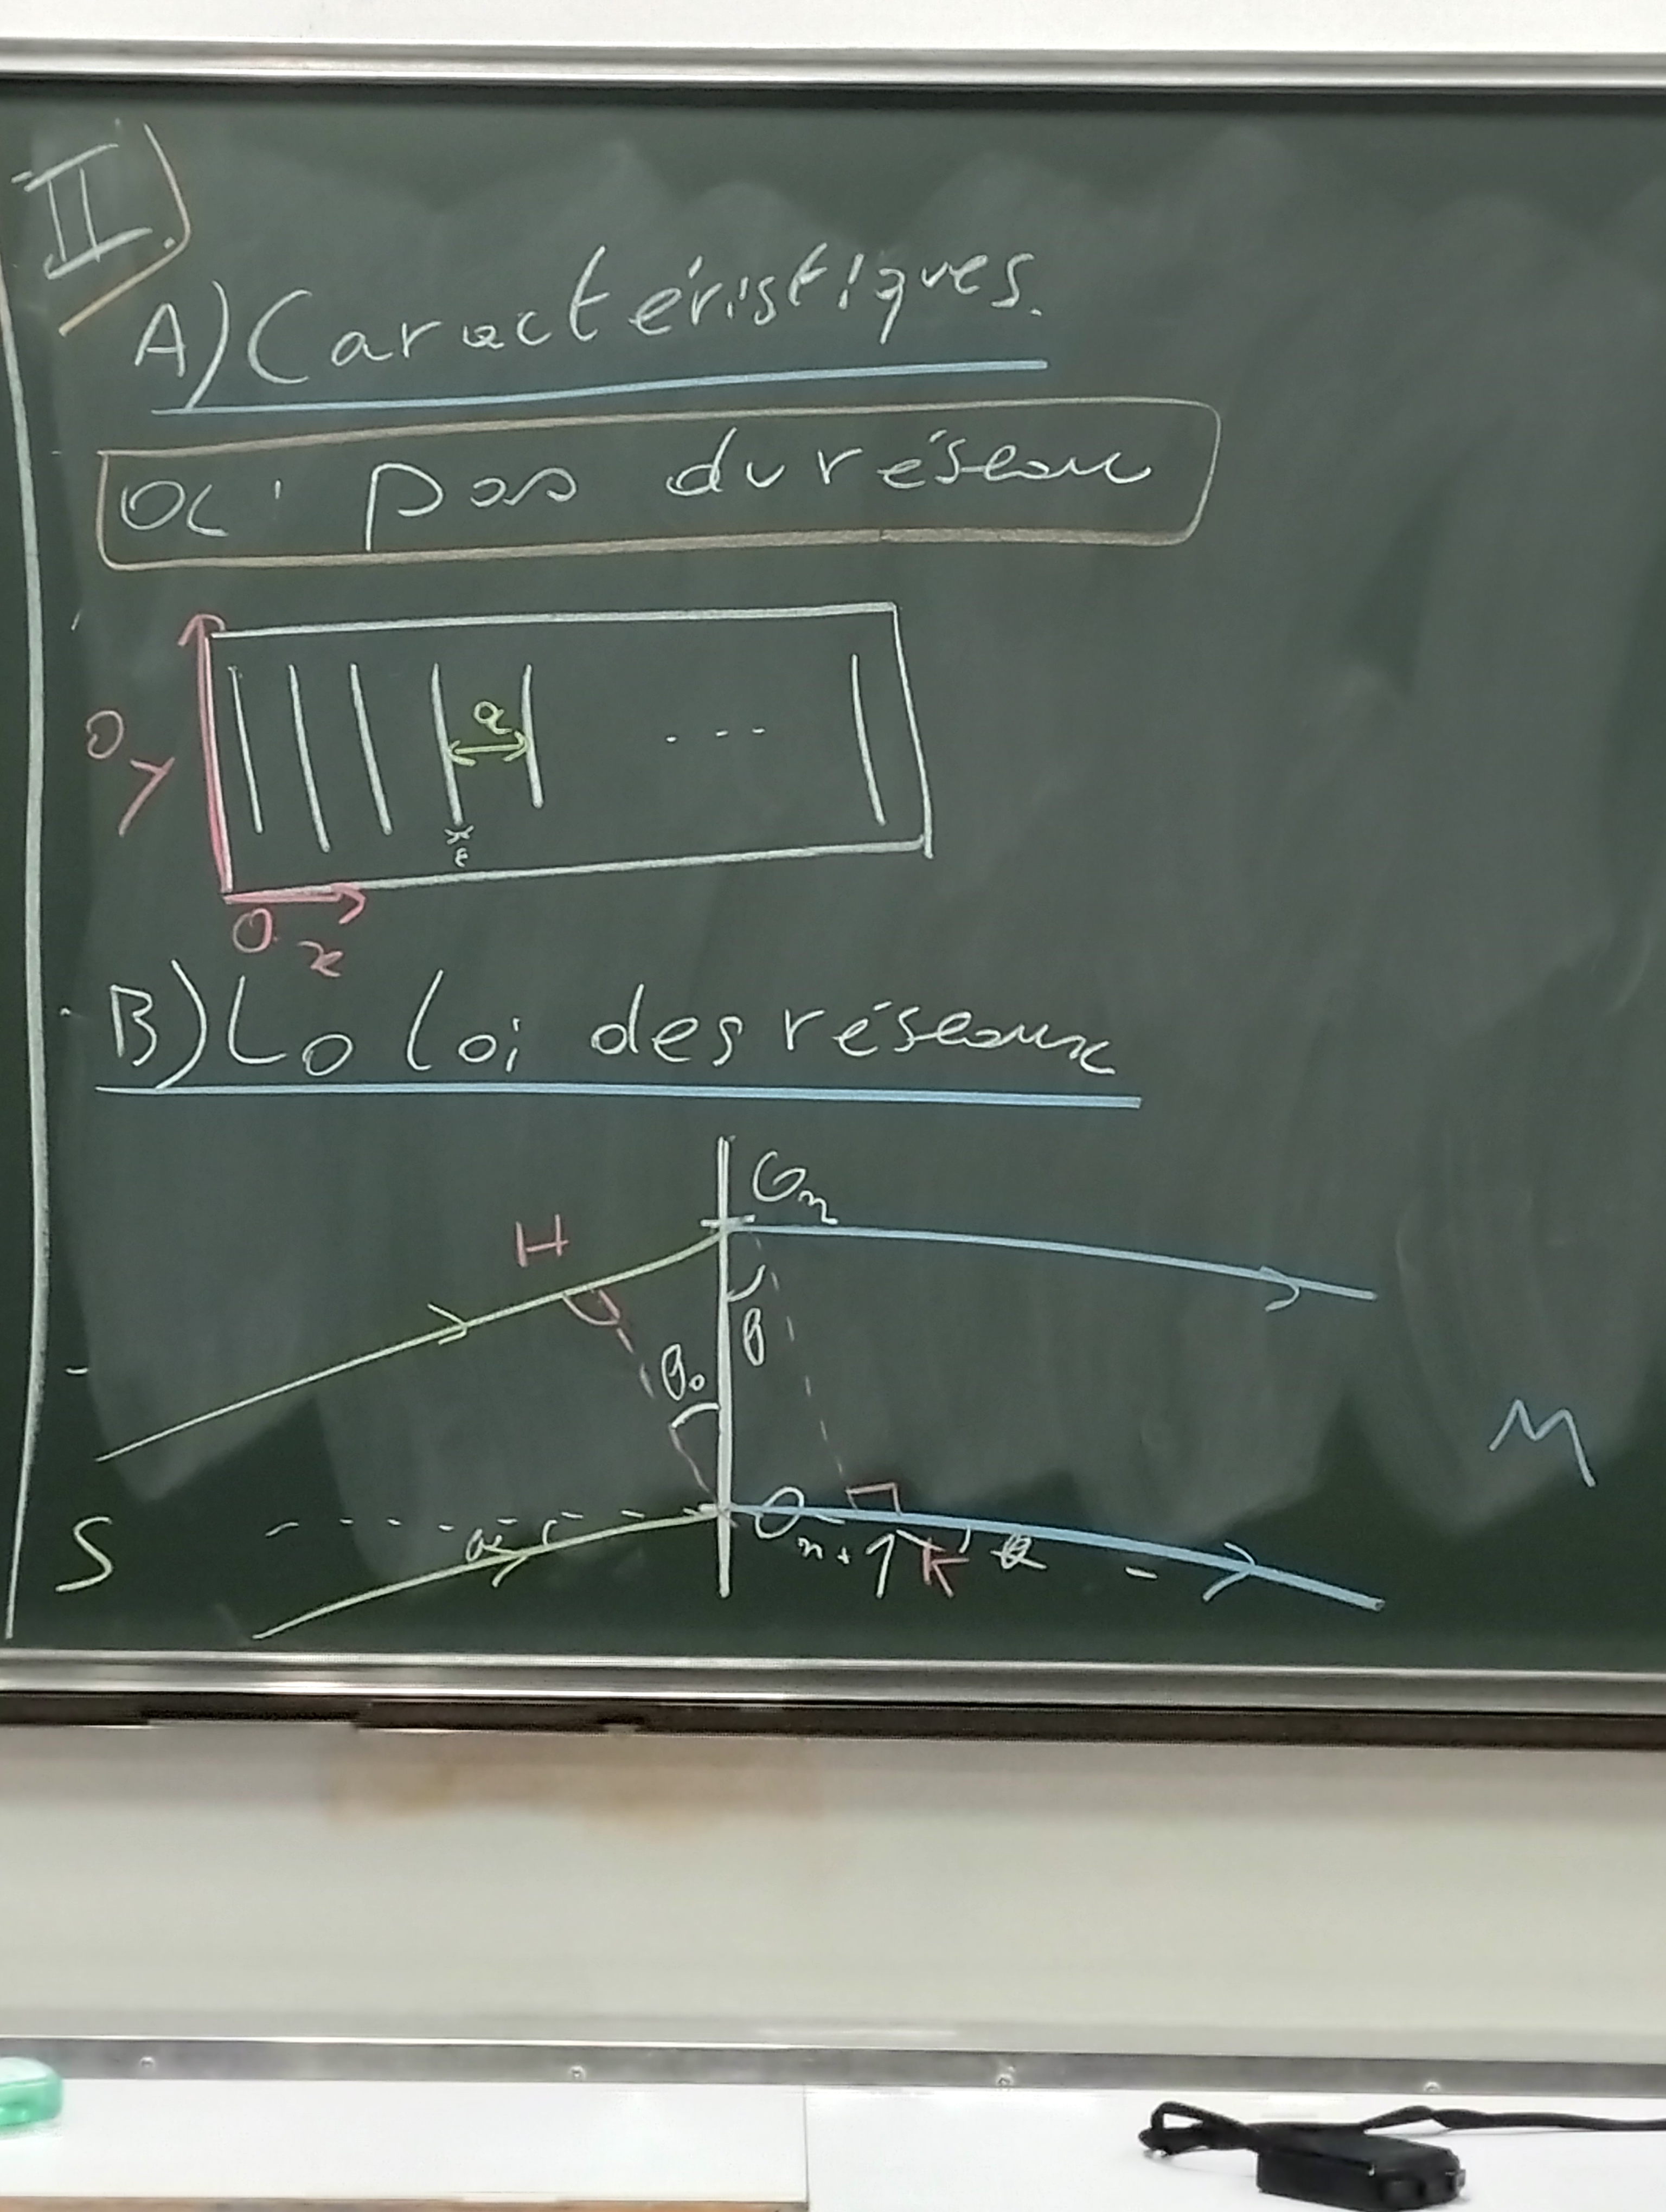 II.
A) Caractéristiques.
a : pas du réseau
a
Oy
ε
Ox
B) La loi des réseaux
On
H
θ
θ0
M
S
On+1
K